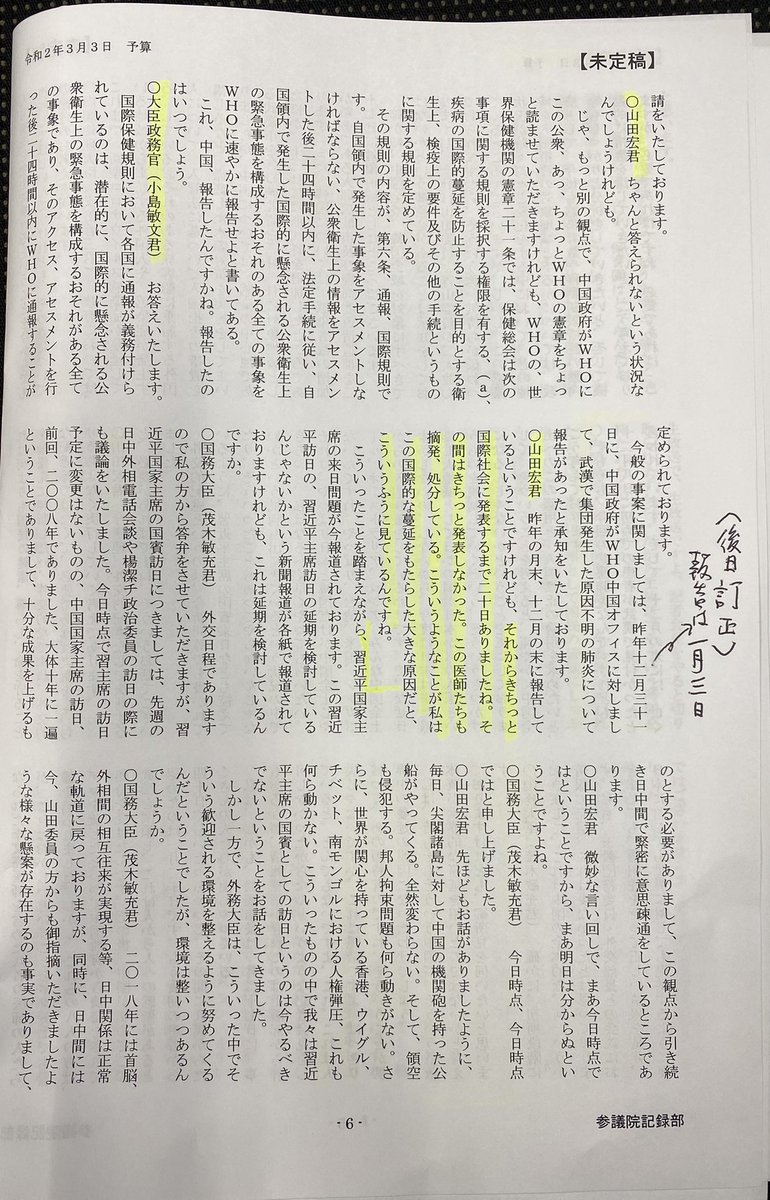 令和2年3月3日　予算
【未定稿】
請をいたしております。
〇山田宏君　ちゃんと答えられないという状況な
んでしょうけれども。
じゃ、もっと別の観点で、中国政府がWHOに
この公衆、あっ、ちょっとWHOの憲章をちょっ
と読ませていただきますけれども、WHOの、世
界保健機関の憲章二十一条では、保健総会は次の
事項に関する規則を採択する権限を有する、(a)、
疾病の国際的蔓延を防止することを目的とする衛
生上、検疫上の要件及びその他の手続というもの
に関する規則を定めている。
その規則の内容が、第六条、通報、国際規則で
す。自国領内で発生した事象をアセスメントしな
ければならない、公衆衛生上の情報をアセスメン
トした後二十四時間以内に、法定手続に従い、自
国領内で発生した国際的に懸念される公衆衛生上
の緊急事態を構成するおそれのある全ての事象を
WHOに速やかに報告せよと書いてある。
これ、中国、報告したんですかね。報告したの
はいつでしょう。
〇大臣政務官（小島敏文君）　お答えいたします。
国際保健規則において各国に通報が義務付けら
れているのは、潜在的に、国際的に懸念される公
衆衛生上の緊急事態を構成するおそれがある全て
の事象であり、そのアクセス、アセスメントを行
った後二十四時間以内にWHOに通報することが
定められております。
今般の事案に関しましては、昨年十二月三十一
日に、中国政府がWHO中国オフィスに対しまし
て、武漢で集団発生した原因不明の肺炎について
報告があったと承知をいたしております。
〇山田宏君　昨年の月末、十二月の末に報告して
いるということですけれども、それからきちっと
国際社会に発表するまで二十日ありましたね。そ
の間はきちっと発表しなかった。この医師たちも
摘発、処分している。こういうようなことが私は
この国際的な蔓延をもたらした大きな原因だと、
こういうふうに見ているんですね。
こういったことを踏まえながら、習近平国家主
席の来日問題が今報道されております。この習近
平訪日の、習近平主席訪日の延期を検討している
んじゃないかという新聞報道が各紙で報道されて
おりますけれども、これは延期を検討しているん
ですか。
〇国務大臣（茂木敏充君）　外交日程であります
ので私の方から答弁をさせていただきますが、習
近平国家主席の国賓訪日につきましては、先週の
日中外相電話会談や楊潔チ政治委員の訪日の際に
も議論をいたしました。今日時点で習主席の訪日
予定に変更はないものの、中国国家主席の訪日、
前回、二〇〇八年でありました、大体十年に一遍
ということでありまして、十分な成果を上げるも
（後日訂正）
報告は一月三日
のとする必要がありまして、この観点から引き続
き日中間で緊密に意思疎通をしているところであ
ります。
〇山田宏君　微妙な言い回しで、まあ今日時点で
はということですから、まあ明日は分からぬとい
うことですよね。
〇国務大臣（茂木敏充君）　今日時点、今日時点
ではと申し上げました。
〇山田宏君　先ほどもお話がありましたように、
毎日、尖閣諸島に対して中国の機関砲を持った公
船がやってくる。全然変わらない。そして、領空
も侵犯する。邦人拘束問題も何ら動きがない。さ
らに、世界が関心を持っている香港、ウイグル、
チベット、南モンゴルにおける人権弾圧、これも
何ら動かない。こういったものの中で我々は習近
平主席の国賓としての訪日というのは今やるべき
でないということをお話をしてきました。
しかし一方で、外務大臣は、こういった中でそ
ういう歓迎される環境を整えるように努めてくる
んだということでしたが、環境は整いつつあるん
でしょうか。
〇国務大臣（茂木敏充君）　二〇一八年には首脳、
外相間の相互往来が実現する等、日中関係は正常
な軌道に戻っておりますが、同時に、日中間には
今、山田委員の方からも御指摘いただきましたよ
うな様々な懸案が存在するのも事実でありまして、
- 6 -
参議院記録部